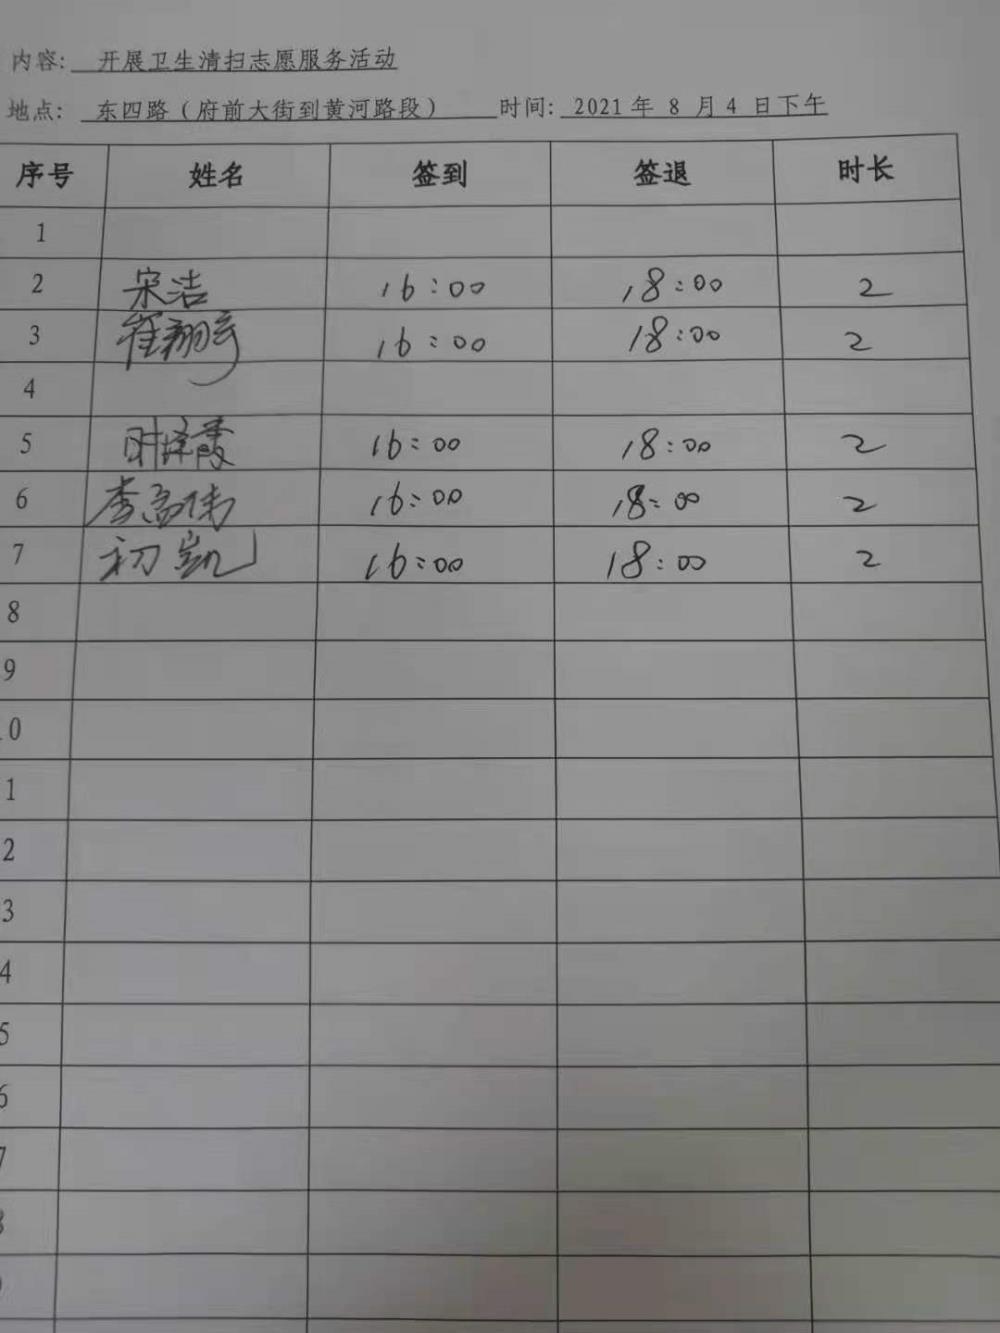 内容: 开展卫生清扫志愿服务活动
地点: 东四路（府前大街到黄河路段） 时间: 2021年 8 月 4 日下午
序号 姓名 签到 签退 时长
1
2 宋洁 16:00 18:00 2
3 崔翔宇 16:00 18:00 2
4
5 时 霞 16:00 18:00 2
6 李 伟 16:00 18:00 2
7 初凯 16:00 18:00 2
8
9
0
1
2
3
4
5
6
7